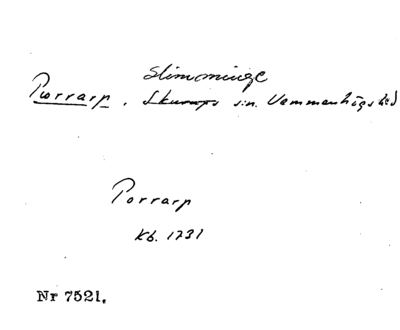 Slimminge
Porrarp, Skurups sn. Vemmenhögs hd
Porrarp
Kb. 1731
Nr 7521.